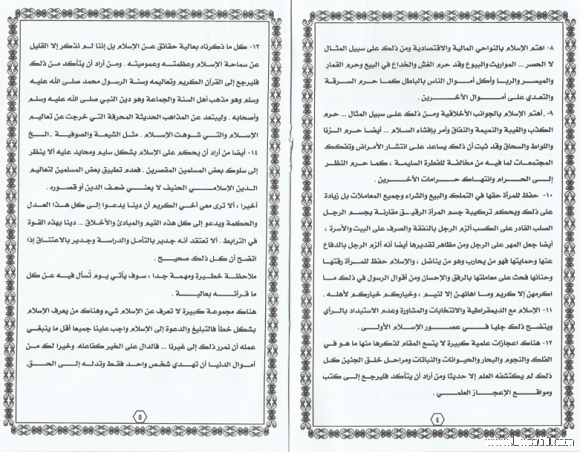 ٨- اهتم الإسلام بالنواحي المالية والاقتصادية ومن ذلك على سبيل المثال
لا الحصر ... المواريث والبيوع وقد حرم الغش والخداع في البيع وحرم القمار
والميسر والربا وأكل أموال الناس بالباطل كما حرم السرقة
والتعدي على أموال الآخرين .
٩- أهتم الإسلام بالجوانب الأخلاقية ومن ذلك على سبيل المثال ... حرم
الكذب والغيبة والنميمة والنفاق وأمر بإفشاء السلام ... أيضا حرم الزنا
واللواط والسحاق وقد ثبت أن ذلك يساعد على انتشار الأمراض وتفكك
المجتمعات لما فيه من مخالفة للفطرة السليمة ، كما حرم النظر
إلى الحرام وانتهاك حرامات الآخرين .
١٠- حفظ للمرأة حقها في التملك والبيع والشراء وجميع المعاملات بل زيادة
على ذلك وبحكم تركيبة جسم المرأة الرقيق مقارنة بجسم الرجل
الصلب القادر على الكسب ألزم الرجل بالنفقة والصرف على البيت والأسرة ،
أيضا جعل المهر على الرجل ومن مظاهر تقديرها أيضا أنه ألزم الرجل بالدفاع
عنها وحمايتها فهو من يحارب وهو من يناضل ، والإسلام حفظ للمرأة رقتها
وحنانها فحث على معاملتها بالرفق والإحسان ومن أقوال الرسول في ذلك ما
اكرمهن إلا كريم وما اهانهن إلا لئيم ، وخياركم خياركم لأهله .
١١- الإسلام مع الديمقراطية والانتخابات والمشاورة وعدم الاستبداد بالرأي
ويتضح ذلك جليا في عصور الإسلام الأولى .
١٢- هناك اعجازات علمية كبيرة لا يتسع المقام لذكرها منها ما هو في
الفلك والنجوم والبحار والحيوانات والنباتات ومراحل خلق الجنين كل
ذلك لم يكتشفه العلم إلا حديثا ومن أراد أن يتأكد فليرجع إلى كتب
ومواقع الإعجاز العلمي .
٤
١٣- كل ما ذكرناه بعالية حقائق عن الإسلام بل إننا لم نذكر إلا القليل
عن سماحة الإسلام وعظمته وعموميته . ومن أراد أن يتأكد من ذلك
فليرجع إلى القرآن الكريم وتعاليمه وسنة الرسول محمد صلى الله عليه
وسلم وهو مذهب أهل السنة والجماعة وهو دين النبي صلى الله عليه وسلم
وأصحابه . وليبتعد عن المذاهب الحديثة المحرفة التي خرجت عن تعاليم
الإسلام والتي شوهت الإسلام . مثل الشيعة والصوفية .. الخ
١٤- أيضا من أراد أن يحكم على الإسلام بشكل سليم ومحايد عليه ألا ينظر
إلى سلوك بعض المسلمين المقصرين . فعدم تطبيق بعض المسلمين لتعاليم
الدين الإسلامي الحنيف لا يعني ضعف الدين أو قصوره .
أخيرا ، ألا ترى معي أخي الكريم أن دينا يدعوا إلى كل هذا العدل
والحكمة ويدعو إلى كل هذه القيم والمبادئ والأخلاق ... دينا بهذه القوة
في الترابط . ألا تعتقد أنه جدير بالتأمل والدراسة وجدير بالاعتناق إذا
اتضح أن كل ذلك صحيح .
ملاحظة خطيرة ومهمة جدا ؛ سوف يأتي يوم تُسأل فيه عن كل
ما قرأته بعالية .
هناك مجموعة كبيرة لا تعرف عن الإسلام شيء وهناك من يعرف الإسلام
بشكل خطأ فالتبليغ والدعوة إلى الإسلام واجب علينا جميعا أقل ما ينبغي
عمله أن نمرر ذلك إلى غيرنا ... فالدال على الخير كفاعله . وخيرا لك من
أموال الدنيا أن تهدي شخص واحد فقط وتدله إلى الحق.
٥